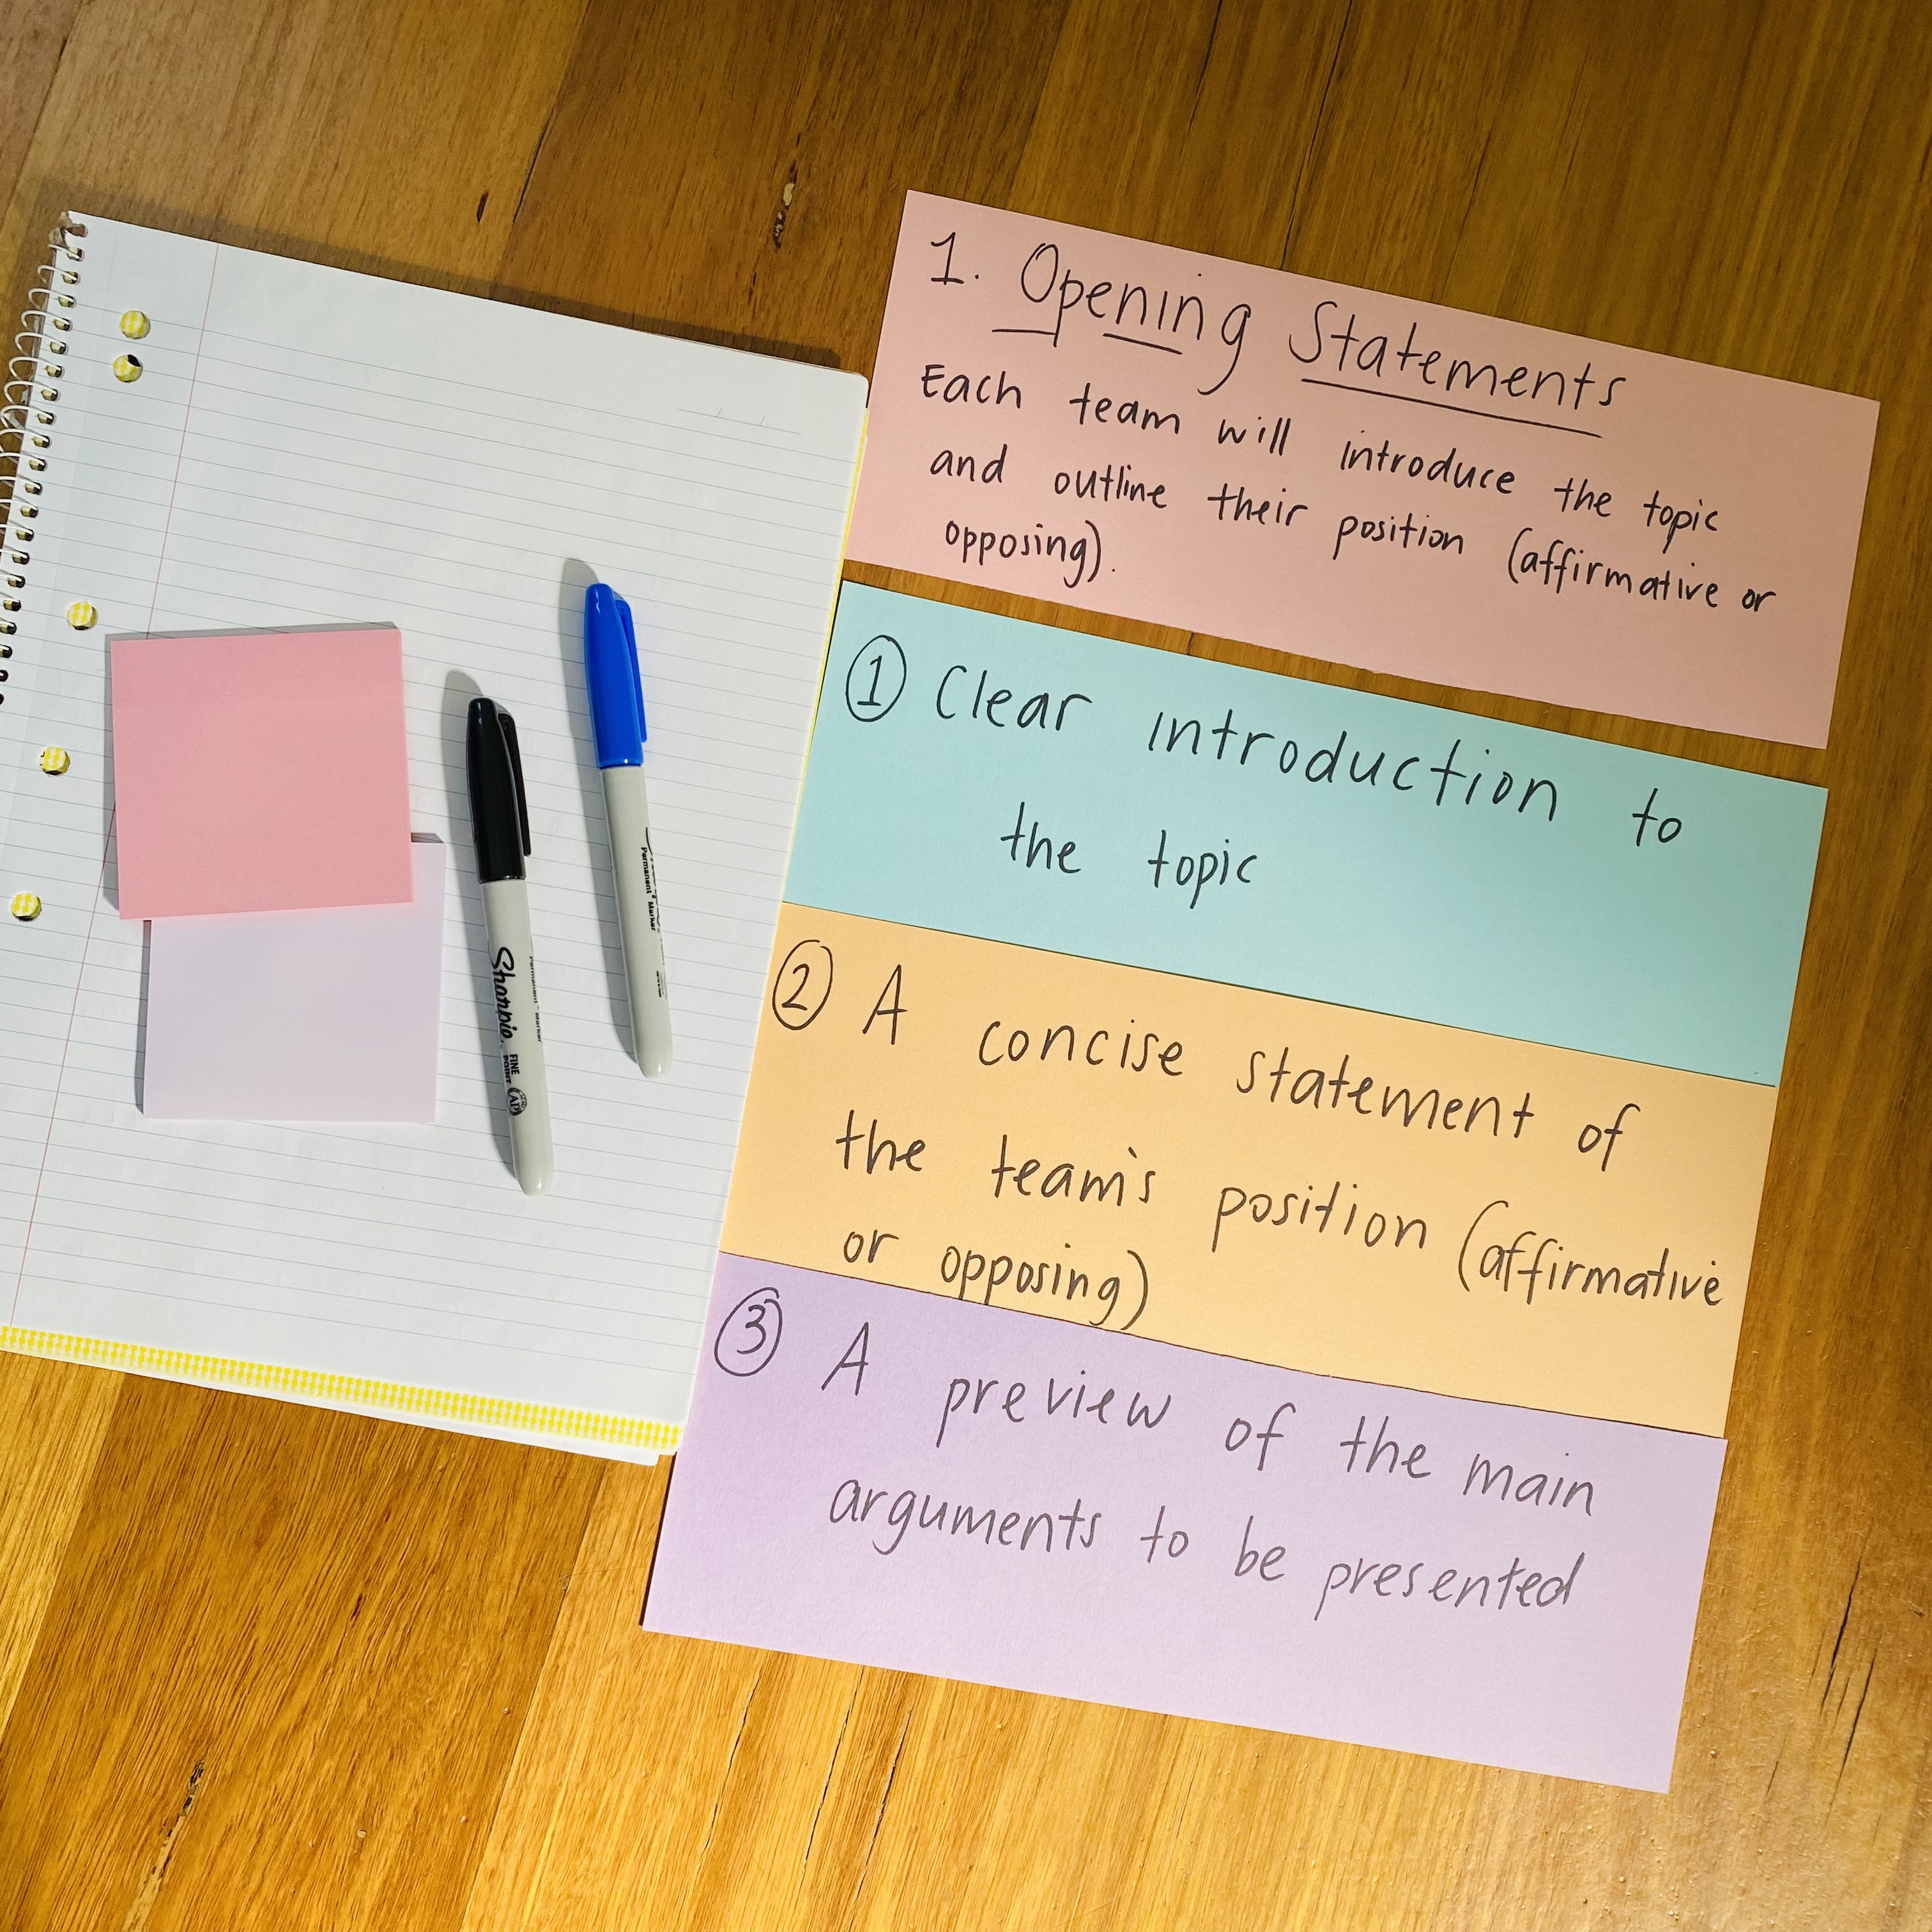 1. Opening Statements
Each team will introduce the topic
and outline their position (affirmative or
opposing).
① Clear introduction to
the topic
② A concise statement of
the team's position (affirmative
or opposing)
③ A preview of the main
arguments to be presented
Permanent Marker
Sharpie
FINE
POINT
AP
Permanent Marker